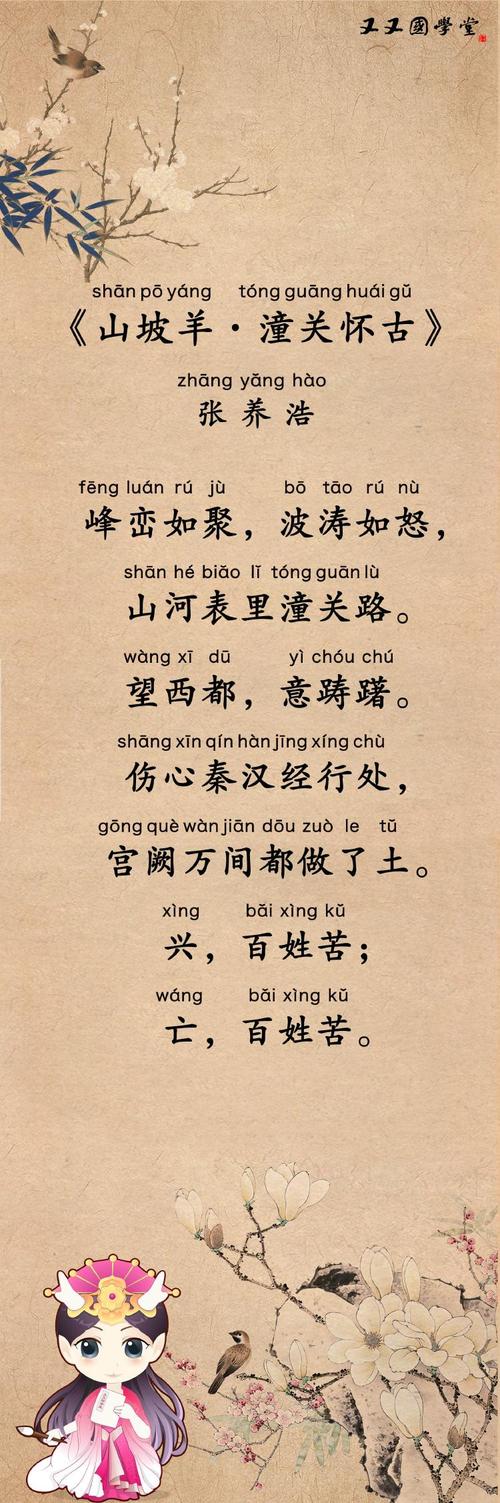 又又國學堂
shān pō yáng tóng guāng huái gŭ
《山坡羊·潼关怀古》
zhāng yăng hào
张养浩
fēng luán rú jù bō tāo rú nù
峰峦如聚，波涛如怒，
shān hé biăo lĭ tóng guān lù
山河表里潼关路。
wàng xī dū yì chóu chú
望西都，意踌躇。
shāng xīn qín hàn jīng xíng chù
伤心秦汉经行处，
gōng què wàn jiān dōu zuò le tŭ
宫阙万间都做了土。
xìng băi xìng kŭ
兴，百姓苦；
wáng băi xìng kŭ
亡，百姓苦。